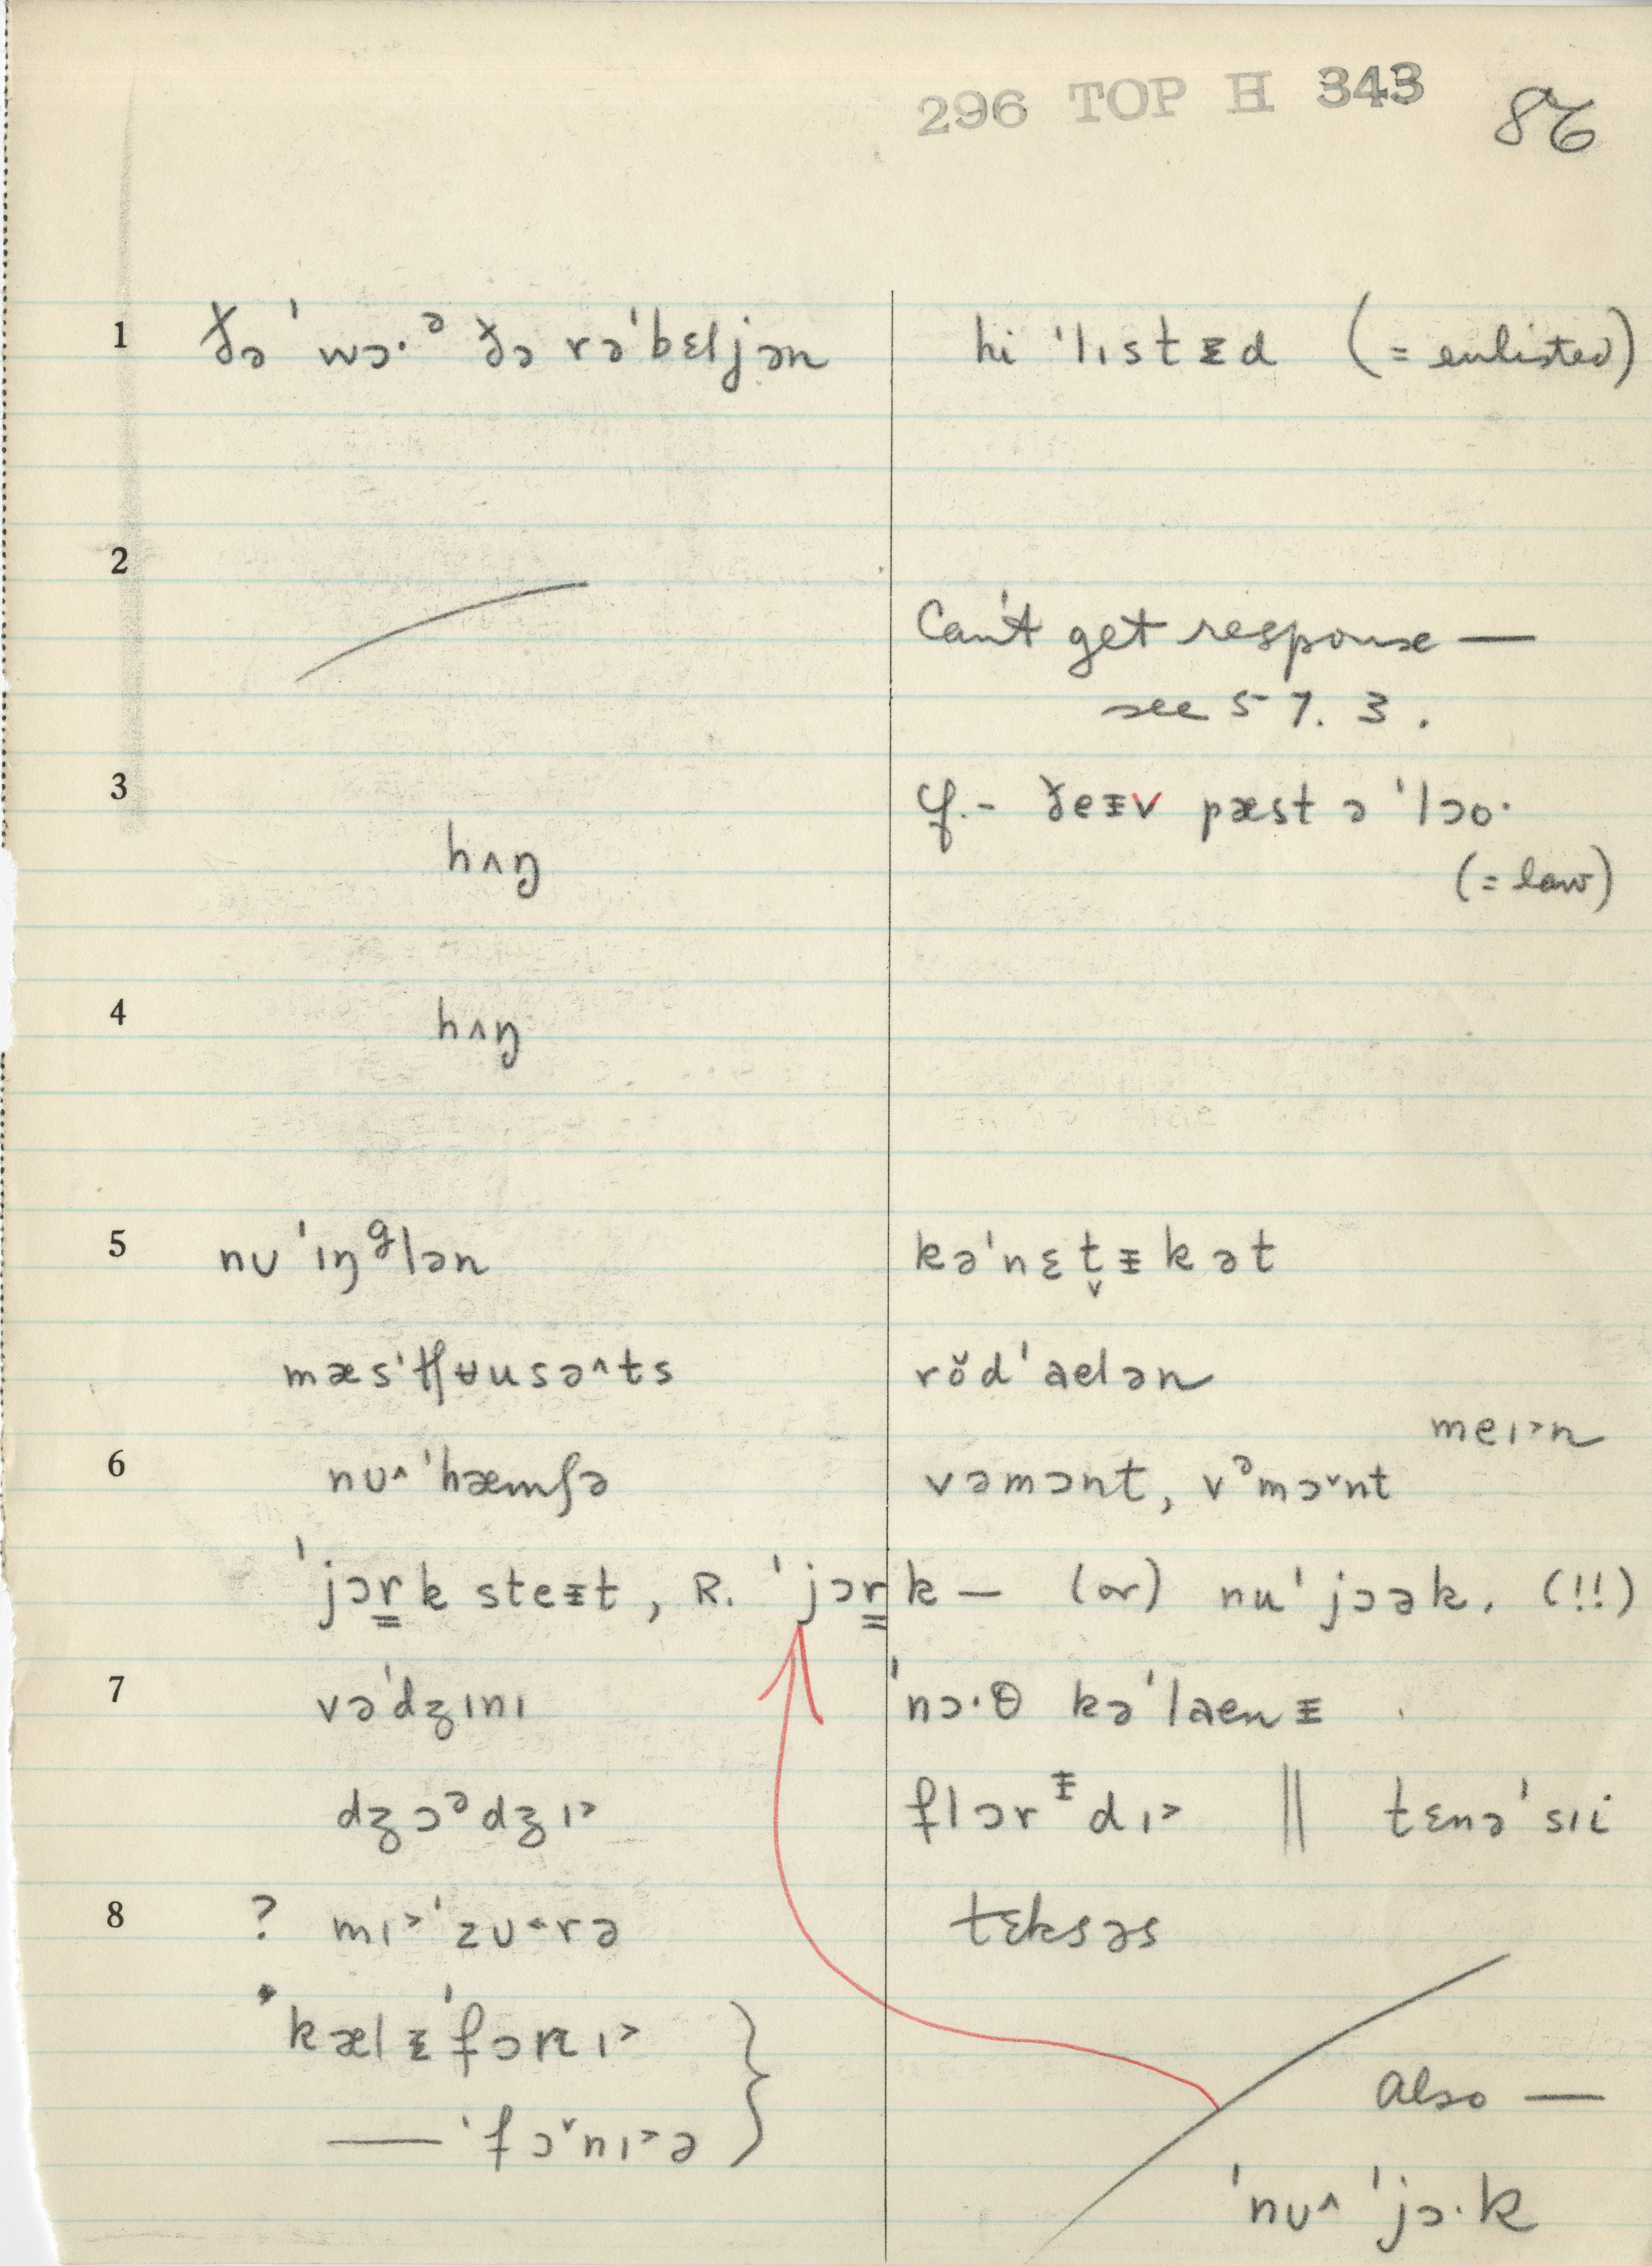 296 TOP H 343 86
1 ðə ˈwɔ·ᵊ ðə rəˈbɛljən hi ˈlɪstᵻd (= enlisted)
2
Can't get response —
see 57.3.
3 cf.- ðeᵻv pæst ə ˈlɔo·
hʌŋ (= law)
4 hʌŋ
5 nʊˈɪŋᶢlən kəˈnɛt̬ᵻkət
mæsˈtʃʉusə^ts rŏdˈaelən
meɪ˃n
6 nʊ^ˈhæmʃə vəmɔnt, vᵊmɔ˅nt
ˈjɔr̳k steᵻt, R. ˈjɔr̳k — (or) nuˈjɔək. (!!)
7 vəˈdʒɪnɪ ˈnɔ·θ kəˈlaenᵻ
dʒɔᵊdʒɪ˃ flɔrᵻdɪ˃ || tɛnəˈsɪi
8 ? mɪ˃ˈzʊ˂rə tɛksəs
kælᵻˈfɔnɪ˃
— ˈfɔ˅nɪ˃ə } Also —
ˈnʊ^ ˈjɔ·k